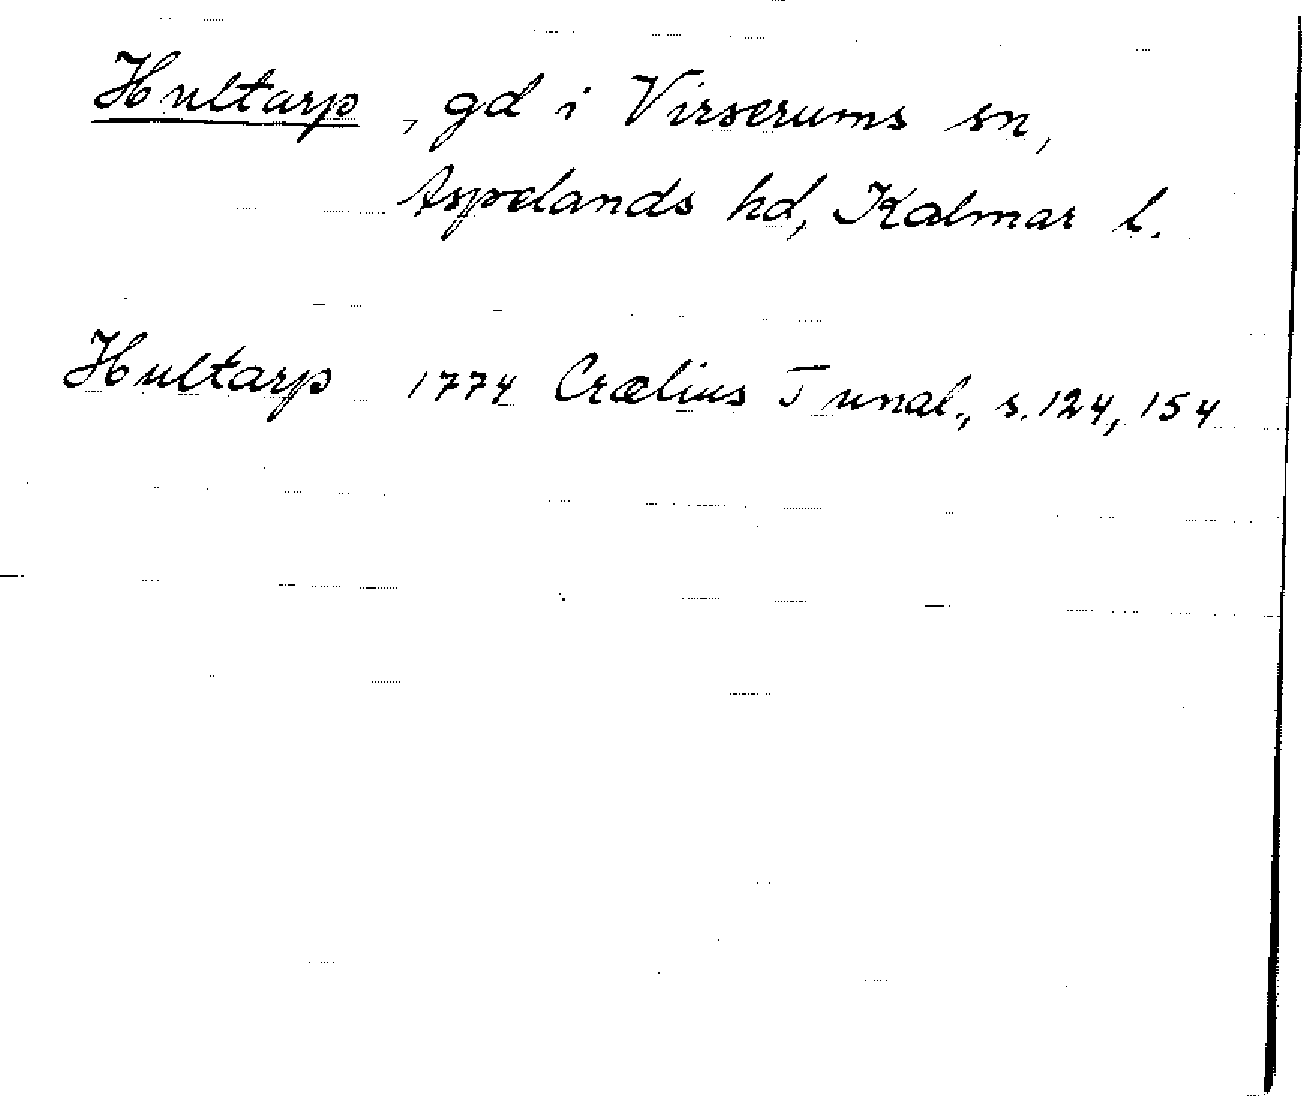 Hultarp, gd i Virserums sn,
Aspelands hd, Kalmar l.
Hultarp 1774 Crælius Tunal., s. 124, 154